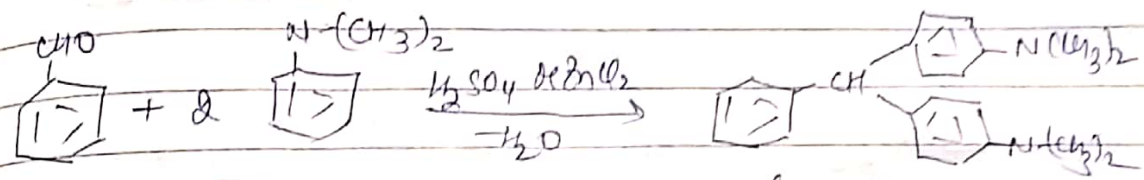 CHO + 2 N-(CH3)2 H2SO4 or ZnCl2 -H2O CH N(CH3)2
N-(CH3)2